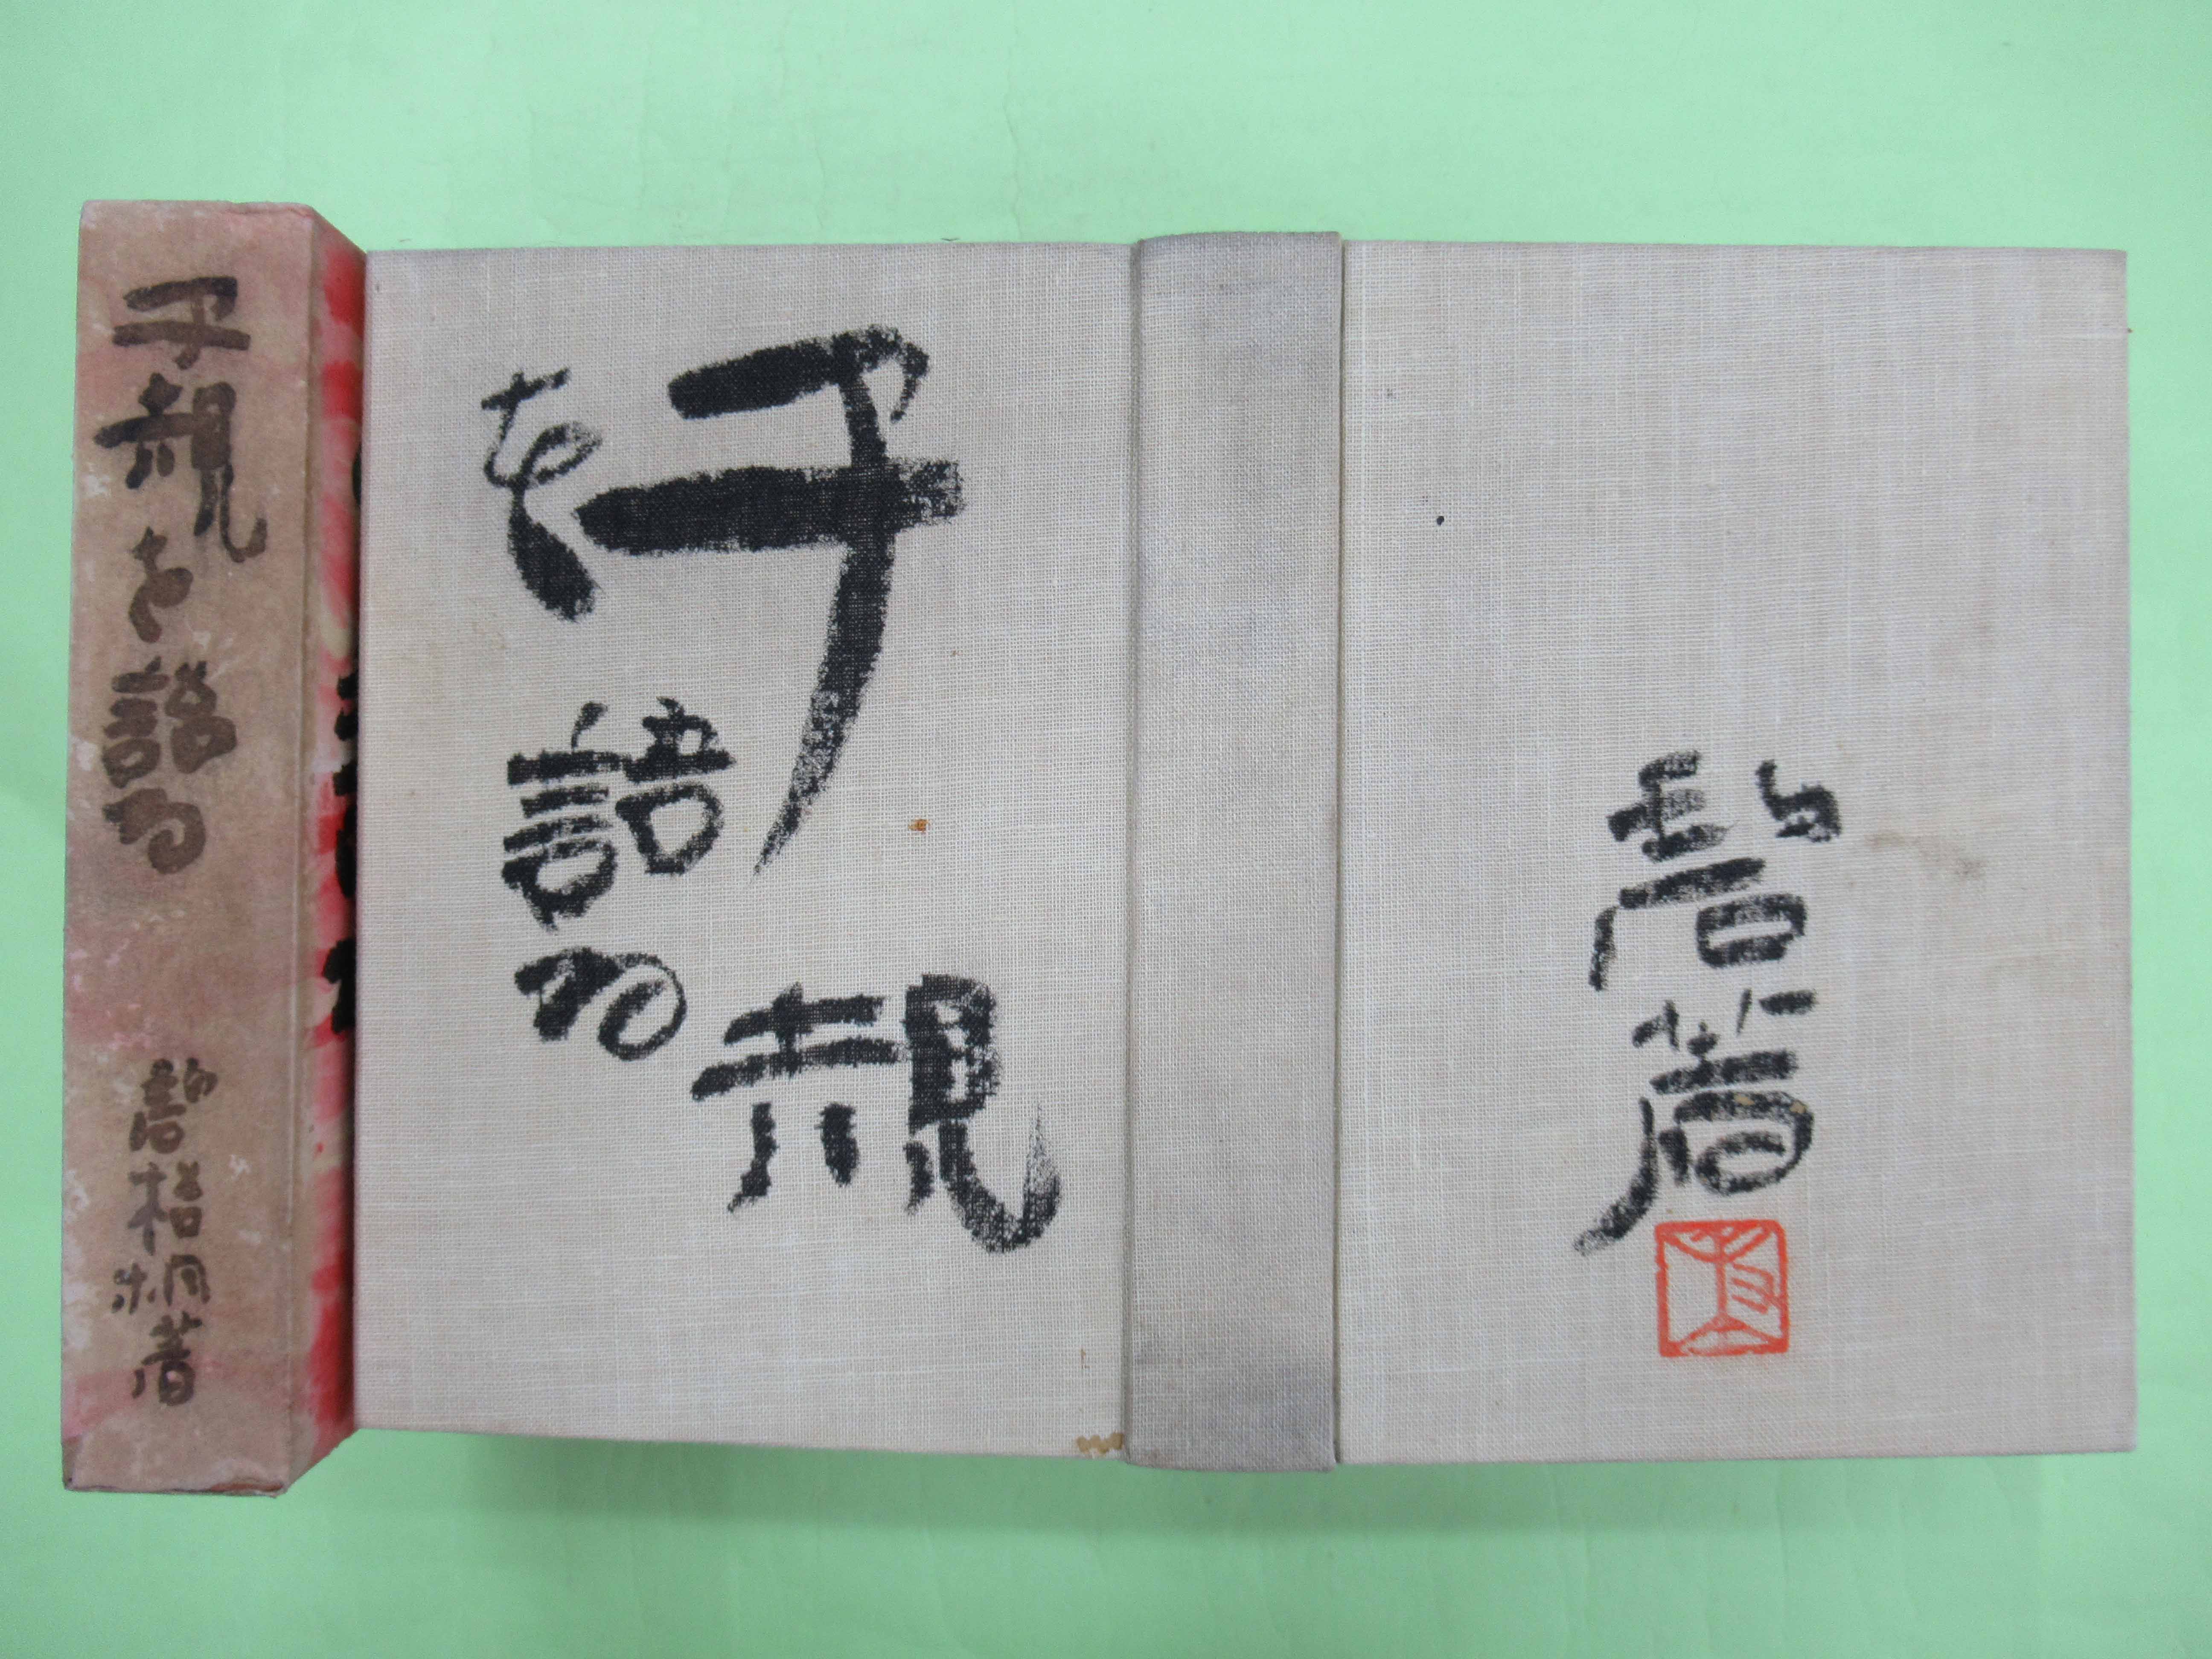 子規を語る
碧梧桐著
子規
を語る
碧著